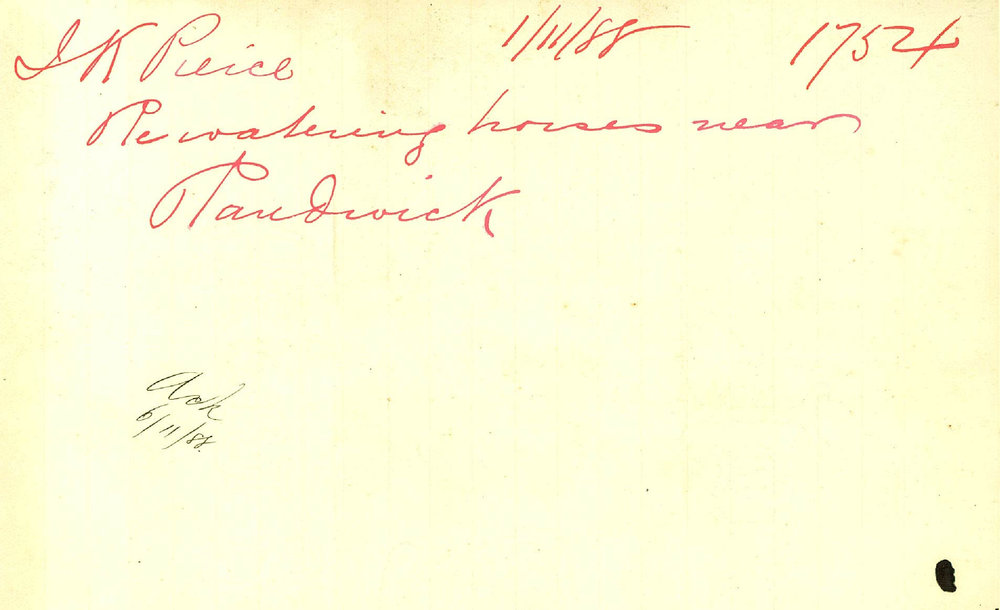 J K Pierce 1/11/88 1754
Re watering horses near
Randwick
Ack
6/11/88.